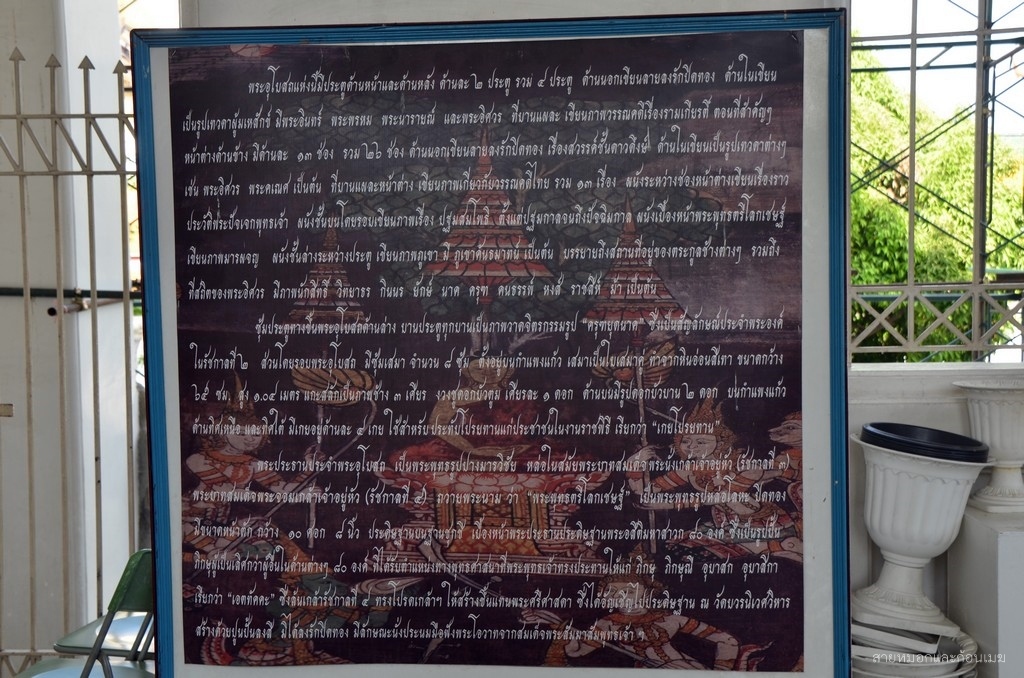 พระอุโบสถแห่งนี้มีประตูด้านหน้าและด้านหลัง ด้านละ ๒ ประตู รวม ๔ ประตู ด้านนอกเขียนลายลงรักปิดทอง ด้านในเขียน
เป็นรูปเทวดายืนแท่น มีพระอินทร์ พระพรหม พระนารายณ์ และพระอิศวร ที่บานแผละ เขียนภาพวรรณคดีเรื่องรามเกียรติ์ ตอนที่สำคัญๆ
หน้าต่างด้านข้าง มีด้านละ ๑๓ ช่อง รวม ๒๖ ช่อง ด้านนอกเขียนลายลงรักปิดทอง เรื่องสวรรค์ชั้นดาวดึงส์ ด้านในเขียนเป็นรูปเทวดาต่างๆ
เช่น พระอิศวร พระคเณศ เป็นต้น ที่บานแผละหน้าต่าง เขียนภาพเกี่ยวกับวรรณคดีไทย รวม ๑๓ เรื่อง ผนังระหว่างช่องหน้าต่างเขียนเรื่องราว
ประวัติพระปัจเจกพุทธเจ้า ผนังชั้นบนโดยรอบเขียนภาพเรื่อง ปฐมสมโพธิ ตั้งแต่ปฐมกาลจนถึงปัจฉิมกาล ผนังเบื้องหน้าพระพุทธตรีโลกเชษฐ์
เขียนภาพมารผจญ ผนังชั้นล่างระหว่างประตู เขียนภาพภูเขา มี ภูเขาคันธมาทน์ เป็นต้น บรรยายถึงสถานที่อยู่ของตระกูลช้างต่างๆ รวมถึง
ที่สถิตของพระอิศวร มีภาพนักสิทธิ์ วิทยาธร กินนร ยักษ์ นาค ครุฑ คนธรรพ์ หงส์ ราชสีห์ ม้า เป็นต้น
ซุ้มประตูทางขึ้นพระอุโบสถด้านล่าง บานประตูทุกบานเป็นภาพวาดจิตรกรรมรูป “ครุฑยุดนาค” ซึ่งเป็นสัญลักษณ์ประจำพระองค์
ในรัชกาลที่ ๒ ส่วนโดยรอบพระอุโบสถ มีซุ้มเสมา จำนวน ๘ ซุ้ม ตั้งอยู่บนกำแพงแก้ว เสมาเป็นใบเสมาคู่ ทำจากหินอ่อนสีเทา ขนาดกว้าง
ซม. สูง ๑.๐๔ เมตร แกะสลักเป็นภาพช้าง ๓ เศียร งวงชูดอกบัวตูม เศียรละ ๑ ดอก ด้านบนมีรูปดอกบัวบาน ๒ ดอก บนกำแพงแก้ว
ด้านทิศเหนือ และทิศใต้ มีเกยอยู่ด้านละ ๔ เกย ใช้สำหรับ ประทับโปรยทานแก่ประชาชนในงานราชพิธี เรียกว่า “เกยโปรยทาน”
พระประธานประจำพระอุโบสถ เป็นพระพุทธรูปปางมารวิชัย หล่อในสมัยพระบาทสมเด็จพระนั่งเกล้าเจ้าอยู่หัว (รัชกาลที่ ๓)
พระบาทสมเด็จพระจอมเกล้าเจ้าอยู่หัว (รัชกาลที่ ๔) ถวายพระนาม ว่า “พระพุทธตรีโลกเชษฐ์” เป็นพระพุทธรูปหล่อโลหะ ปิดทอง
มีขนาดหน้าตัก กว้าง ๑๐ ศอก ๘ นิ้ว ประดิษฐานบนฐานชุกชี เบื้องหน้าพระประธานประดิษฐานพระอสีติมหาสาวก ๘๐ องค์ ซึ่งเป็นรูปปั้น
ภิกษุผู้เป็นเลิศกว่าผู้อื่นในด้านต่างๆ ๘๐ องค์ ที่ได้รับตำแหน่งทางพุทธศาสนาที่พระพุทธเจ้าทรงประทานให้แก่ ภิกษุ ภิกษุณี อุบาสก อุบาสิกา
เรียกว่า “เอตทัคคะ” ซึ่งล้นเกล้ารัชกาลที่ ๔ ทรงโปรดเกล้าฯ ให้สร้างขึ้นแทนพระศรีศาสดา ซึ่งได้อัญเชิญไปประดิษฐาน ณ วัดบวรนิเวศวิหาร
สร้างด้วยปูนปั้นลงสี มิได้ลงรักปิดทอง มีลักษณะนั่งประนมมือฟังพระโอวาทจากสมเด็จพระสัมมาสัมพุทธเจ้า ฯ
สายหมอกและก้อนเมฆ